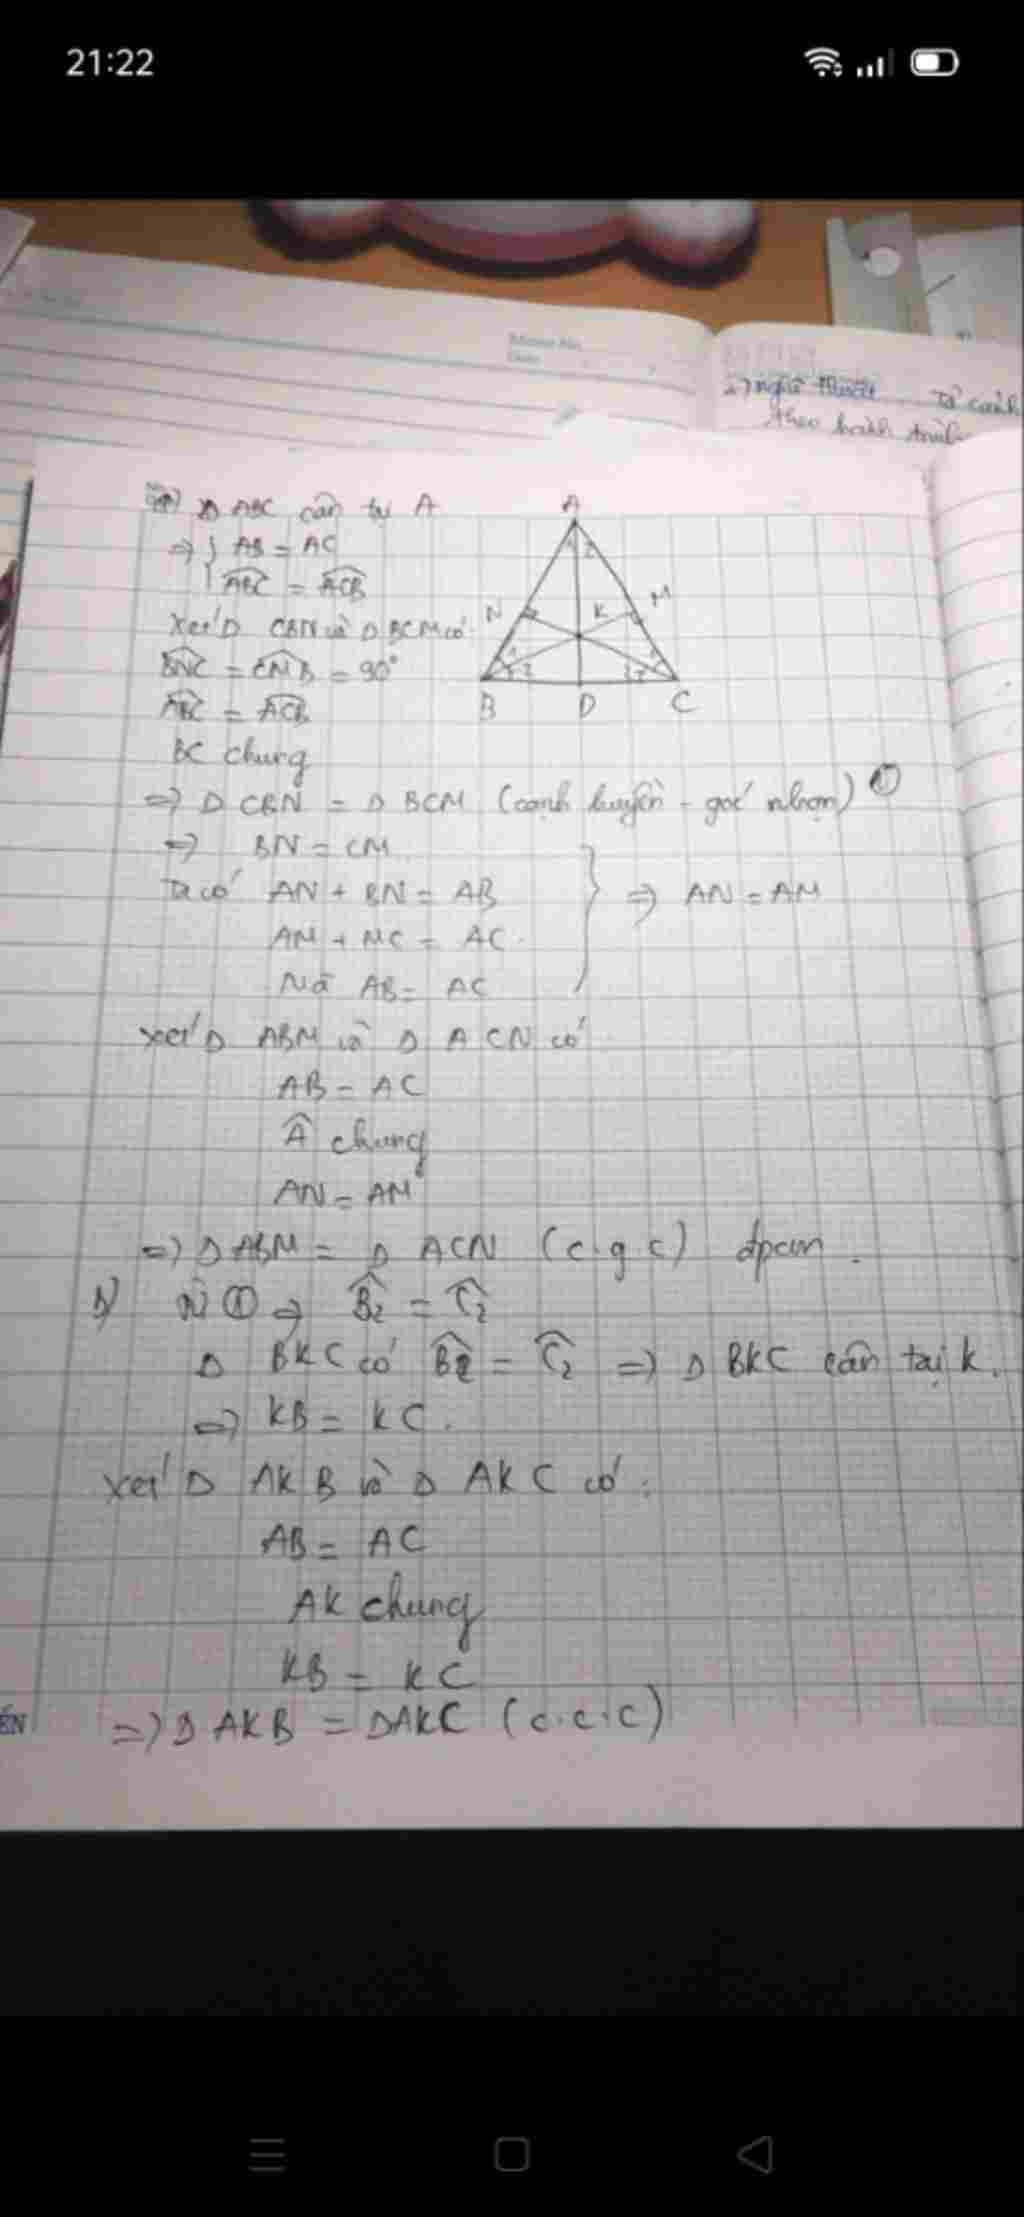 21:22
2) nghệ thuật Tả cảnh
theo hành trình
Δ ABC cân tại A
=> { AB = AC
ABC = ACB
Xét Δ CBN và Δ BCM có
BNC = CMB = 90°
ABC = ACB
BC chung
=> Δ CBN = Δ BCM (cạnh huyền - góc nhọn) ①
=> BN = CM
Ta có AN + BN = AB
AM + MC = AC
Mà AB = AC
} => AN = AM
Xét Δ ABM và Δ ACN có
AB = AC
Â chung
AN = AM
=> Δ ABM = Δ ACN (c.g.c) đpcm.
b) Vì ① => B̂₂ = Ĉ₂
Δ BKC có B̂₂ = Ĉ₂ => Δ BKC cân tại K.
=> KB = KC.
Xét Δ AKB và Δ AKC có:
AB = AC
AK chung
KB = KC
=> Δ AKB = Δ AKC (c.c.c)
A
1 2
N K M
1 2 2 1
B D C